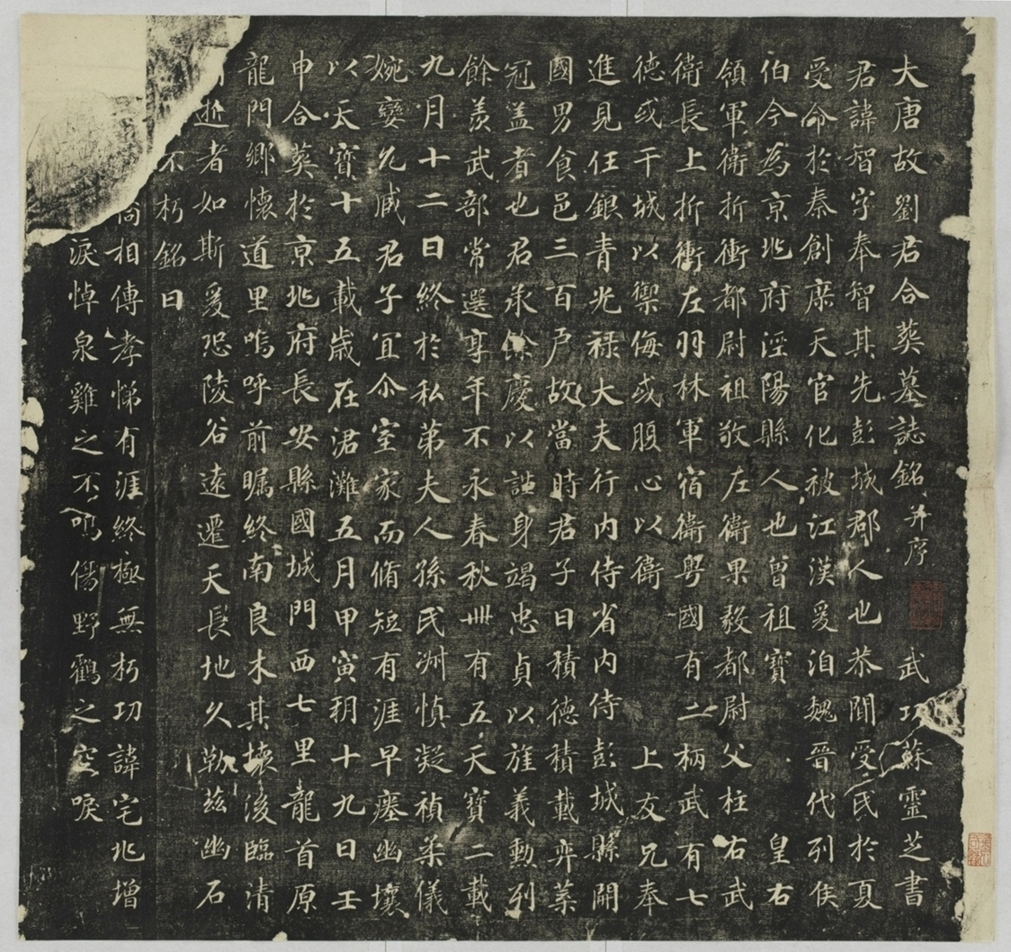 大唐故劉君合葬墓誌銘并序 武功蘇靈芝書
君諱智字奉智其先彭城郡人也恭聞受氏於夏
受命於秦創庶天官化被江漢爰洎魏晉代列侯
伯今為京兆府涇陽縣人也曾祖寶 皇右
領軍衛折衝都尉祖敬左衛果毅都尉父柱右武
衛長上折衝左羽林軍宿衛粵國有二柄武有七
德或干城以禦侮或腹心以衛 上友兄奉
進見任銀青光祿大夫行內侍省內侍彭城縣開
國男食邑三百戶故當時君子曰積德積載弈葉
冠盖者也君承餘慶以謹身竭忠貞以旌義勳列
餘羨武部常選享年不永春秋卌有五天寶二載
九月十二日終於私第夫人孫氏洲慎凝禎柔儀
婉孌允臧君子宜尒室家而脩短有涯早瘞幽壤
以天寶十五載歲在涒灘五月甲寅朔十九日壬
申合葬於京兆府長安縣國城門西七里龍首原
龍門鄉懷道里嗚呼前矚終南良木其壞後臨清
逝者如斯爰恐陵谷遠遷天長地久勒茲幽石
不朽銘曰
相傳孝悌有涯終極無朽功諱宅兆增
淚悼泉雞之不鳴傷野鸛之空唳